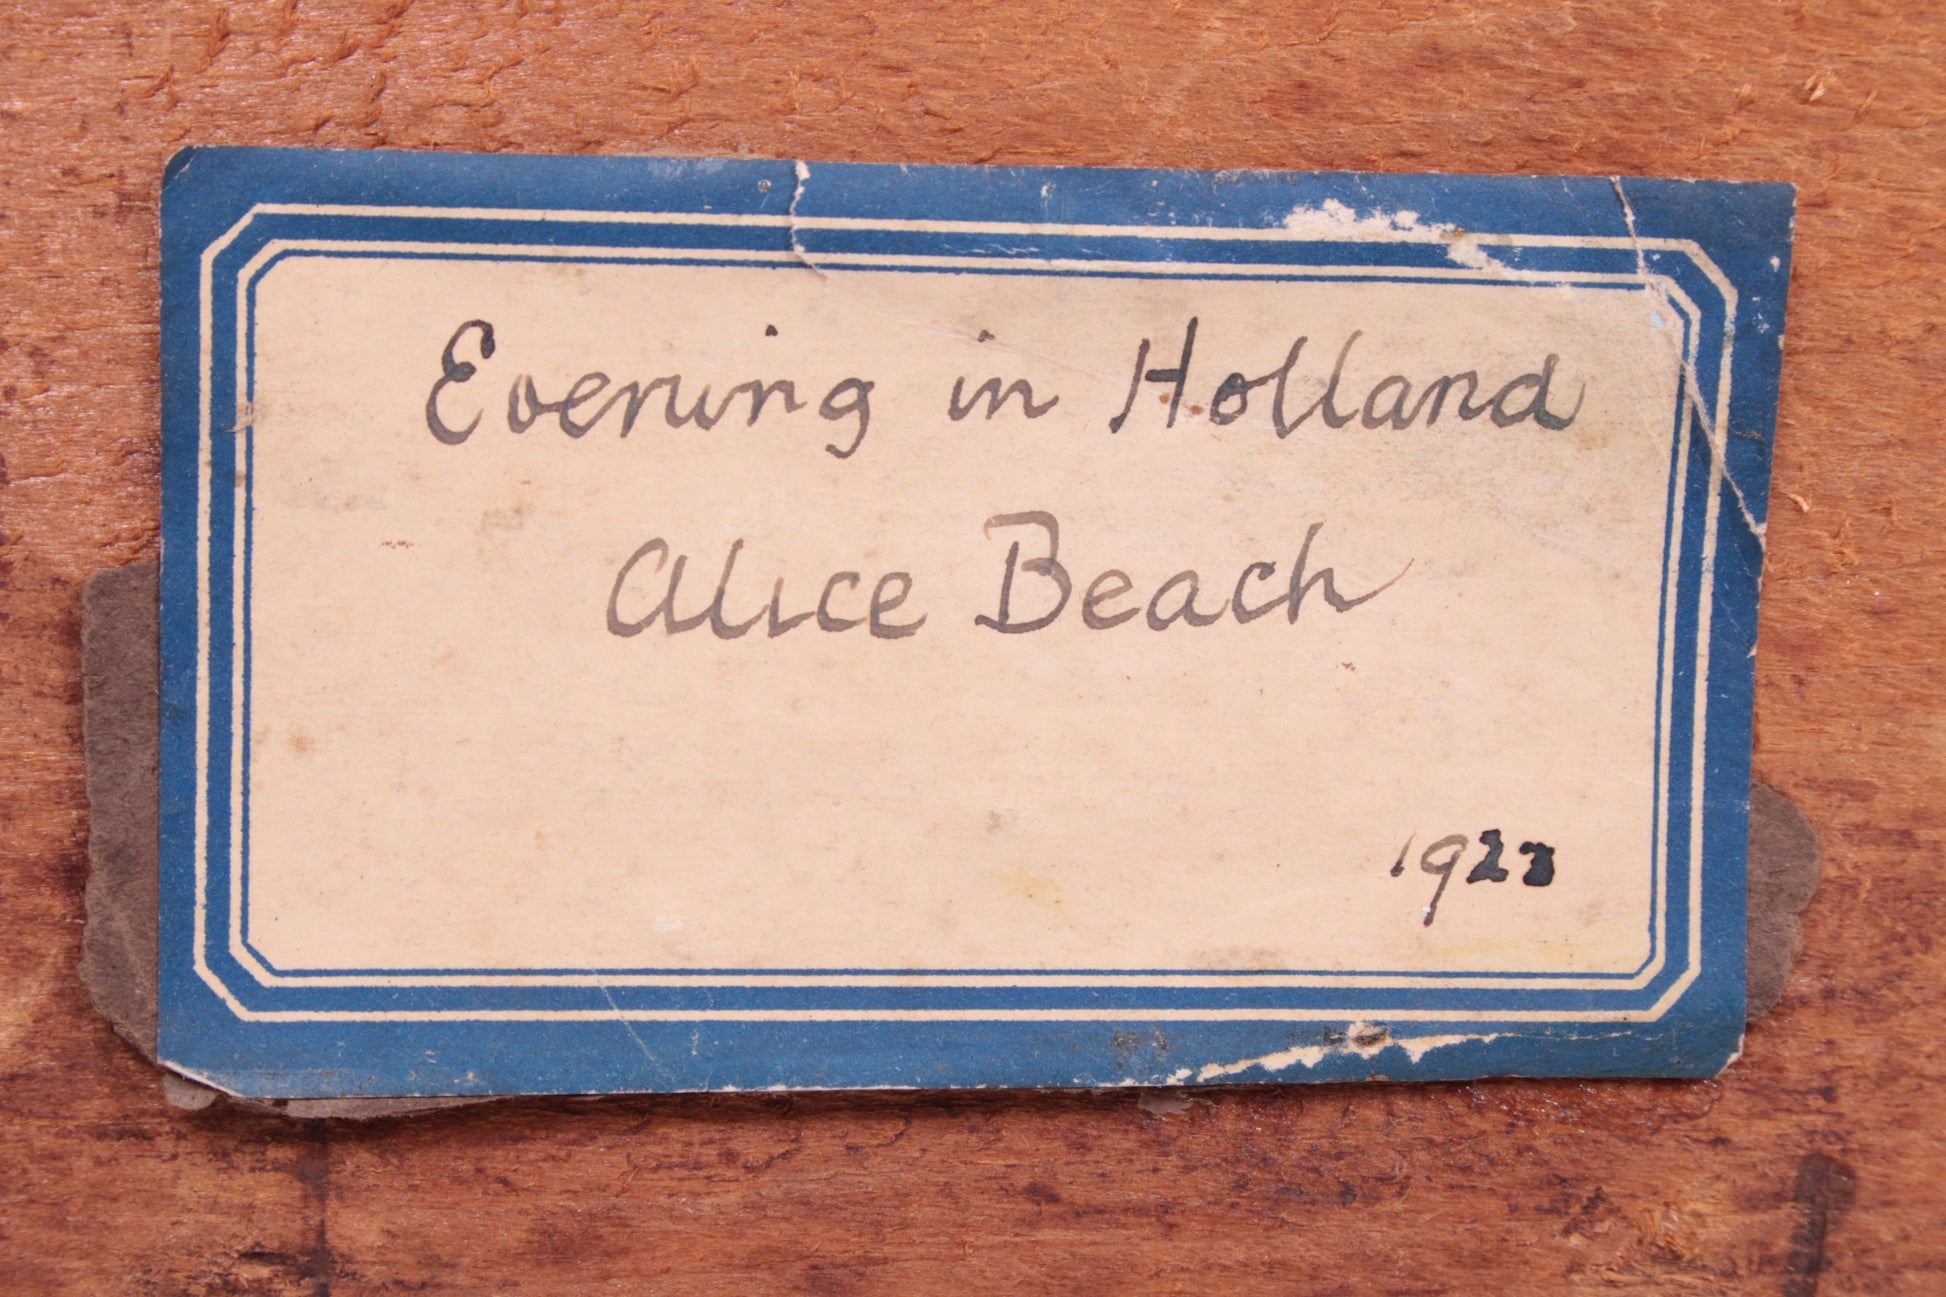 Evening in Holland
Alice Beach